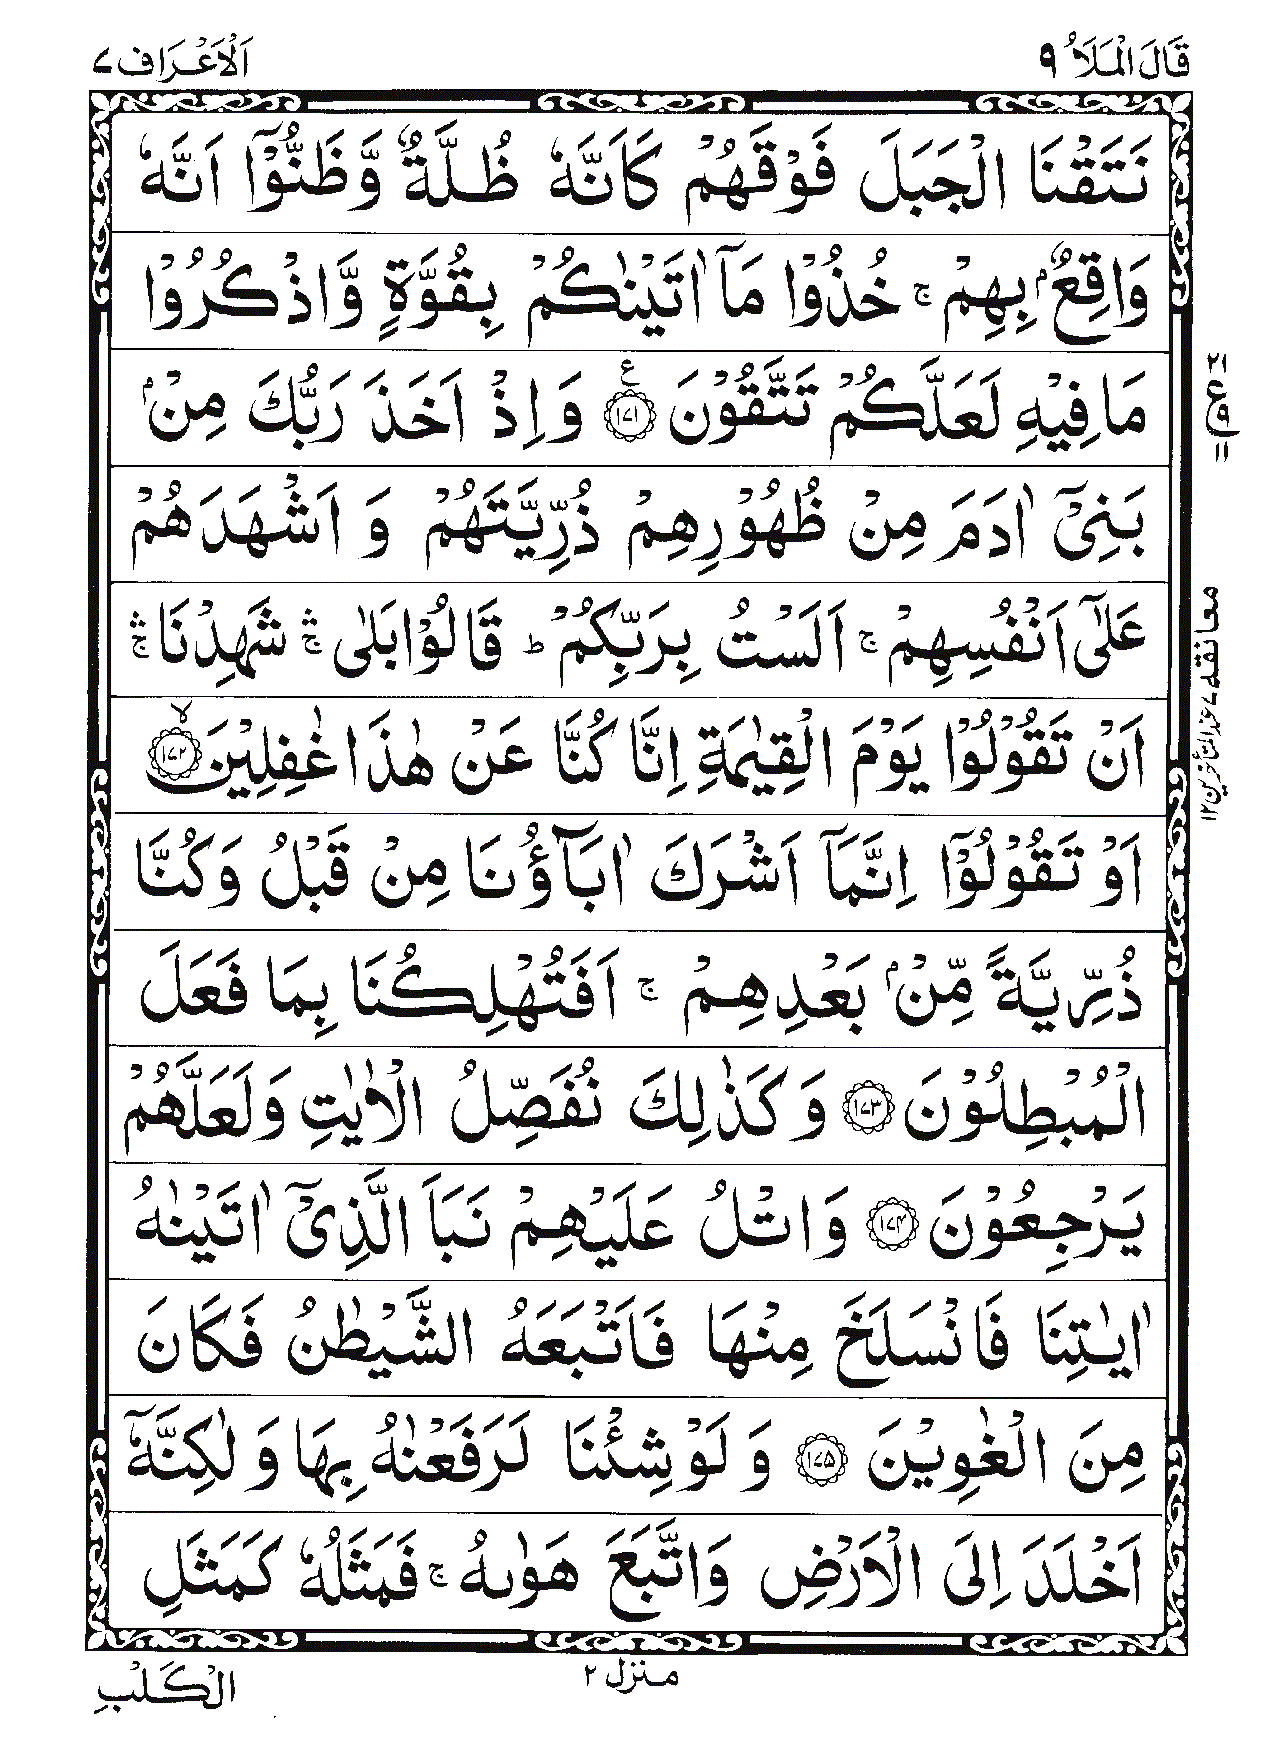 قَالَ الْمَلَاُ ۹
اَلْاَعْرَاف ۷
نَتَقْنَا الْجَبَلَ فَوْقَهُمْ كَاَنَّهٗ ظُلَّةٌ وَّظَنُّوْۤا اَنَّهٗ
وَاقِعٌۢ بِهِمْ ۚ خُذُوْا مَاۤ اٰتَيْنٰكُمْ بِقُوَّةٍ وَّاذْكُرُوْا
مَا فِيْهِ لَعَلَّكُمْ تَتَّقُوْنَ ﴿۱۷۱﴾ ع وَاِذْ اَخَذَ رَبُّكَ مِنْۢ
بَنِيْۤ اٰدَمَ مِنْ ظُهُوْرِهِمْ ذُرِّيَّتَهُمْ وَ اَشْهَدَهُمْ
عَلٰۤى اَنْفُسِهِمْ ۚ اَلَسْتُ بِرَبِّكُمْ ؕ قَالُوْا بَلٰى ۛۚ شَهِدْنَا ۛۚ
اَنْ تَقُوْلُوْا يَوْمَ الْقِيٰمَةِ اِنَّا كُنَّا عَنْ هٰذَا غٰفِلِيْنَ ۙ﴿۱۷۲﴾
اَوْ تَقُوْلُوْۤا اِنَّمَاۤ اَشْرَكَ اٰبَآؤُنَا مِنْ قَبْلُ وَكُنَّا
ذُرِّيَّةً مِّنْۢ بَعْدِهِمْ ۚ اَفَتُهْلِكُنَا بِمَا فَعَلَ
الْمُبْطِلُوْنَ ﴿۱۷۳﴾ وَكَذٰلِكَ نُفَصِّلُ الْاٰيٰتِ وَلَعَلَّهُمْ
يَرْجِعُوْنَ ﴿۱۷۴﴾ وَاتْلُ عَلَيْهِمْ نَبَاَ الَّذِيْۤ اٰتَيْنٰهُ
اٰيٰتِنَا فَانْسَلَخَ مِنْهَا فَاَتْبَعَهُ الشَّيْطٰنُ فَكَانَ
مِنَ الْغٰوِيْنَ ﴿۱۷۵﴾ وَلَوْ شِئْنَا لَرَفَعْنٰهُ بِهَا وَلٰكِنَّهٗۤ
اَخْلَدَ اِلَى الْاَرْضِ وَاتَّبَعَ هَوٰىهُ ۚ فَمَثَلُهٗ كَمَثَلِ
۲۱
ع
۹
۱۱
معانقه ۷ عند المتأخرین ۱۲
منزل ۲
الْكَلْبِ